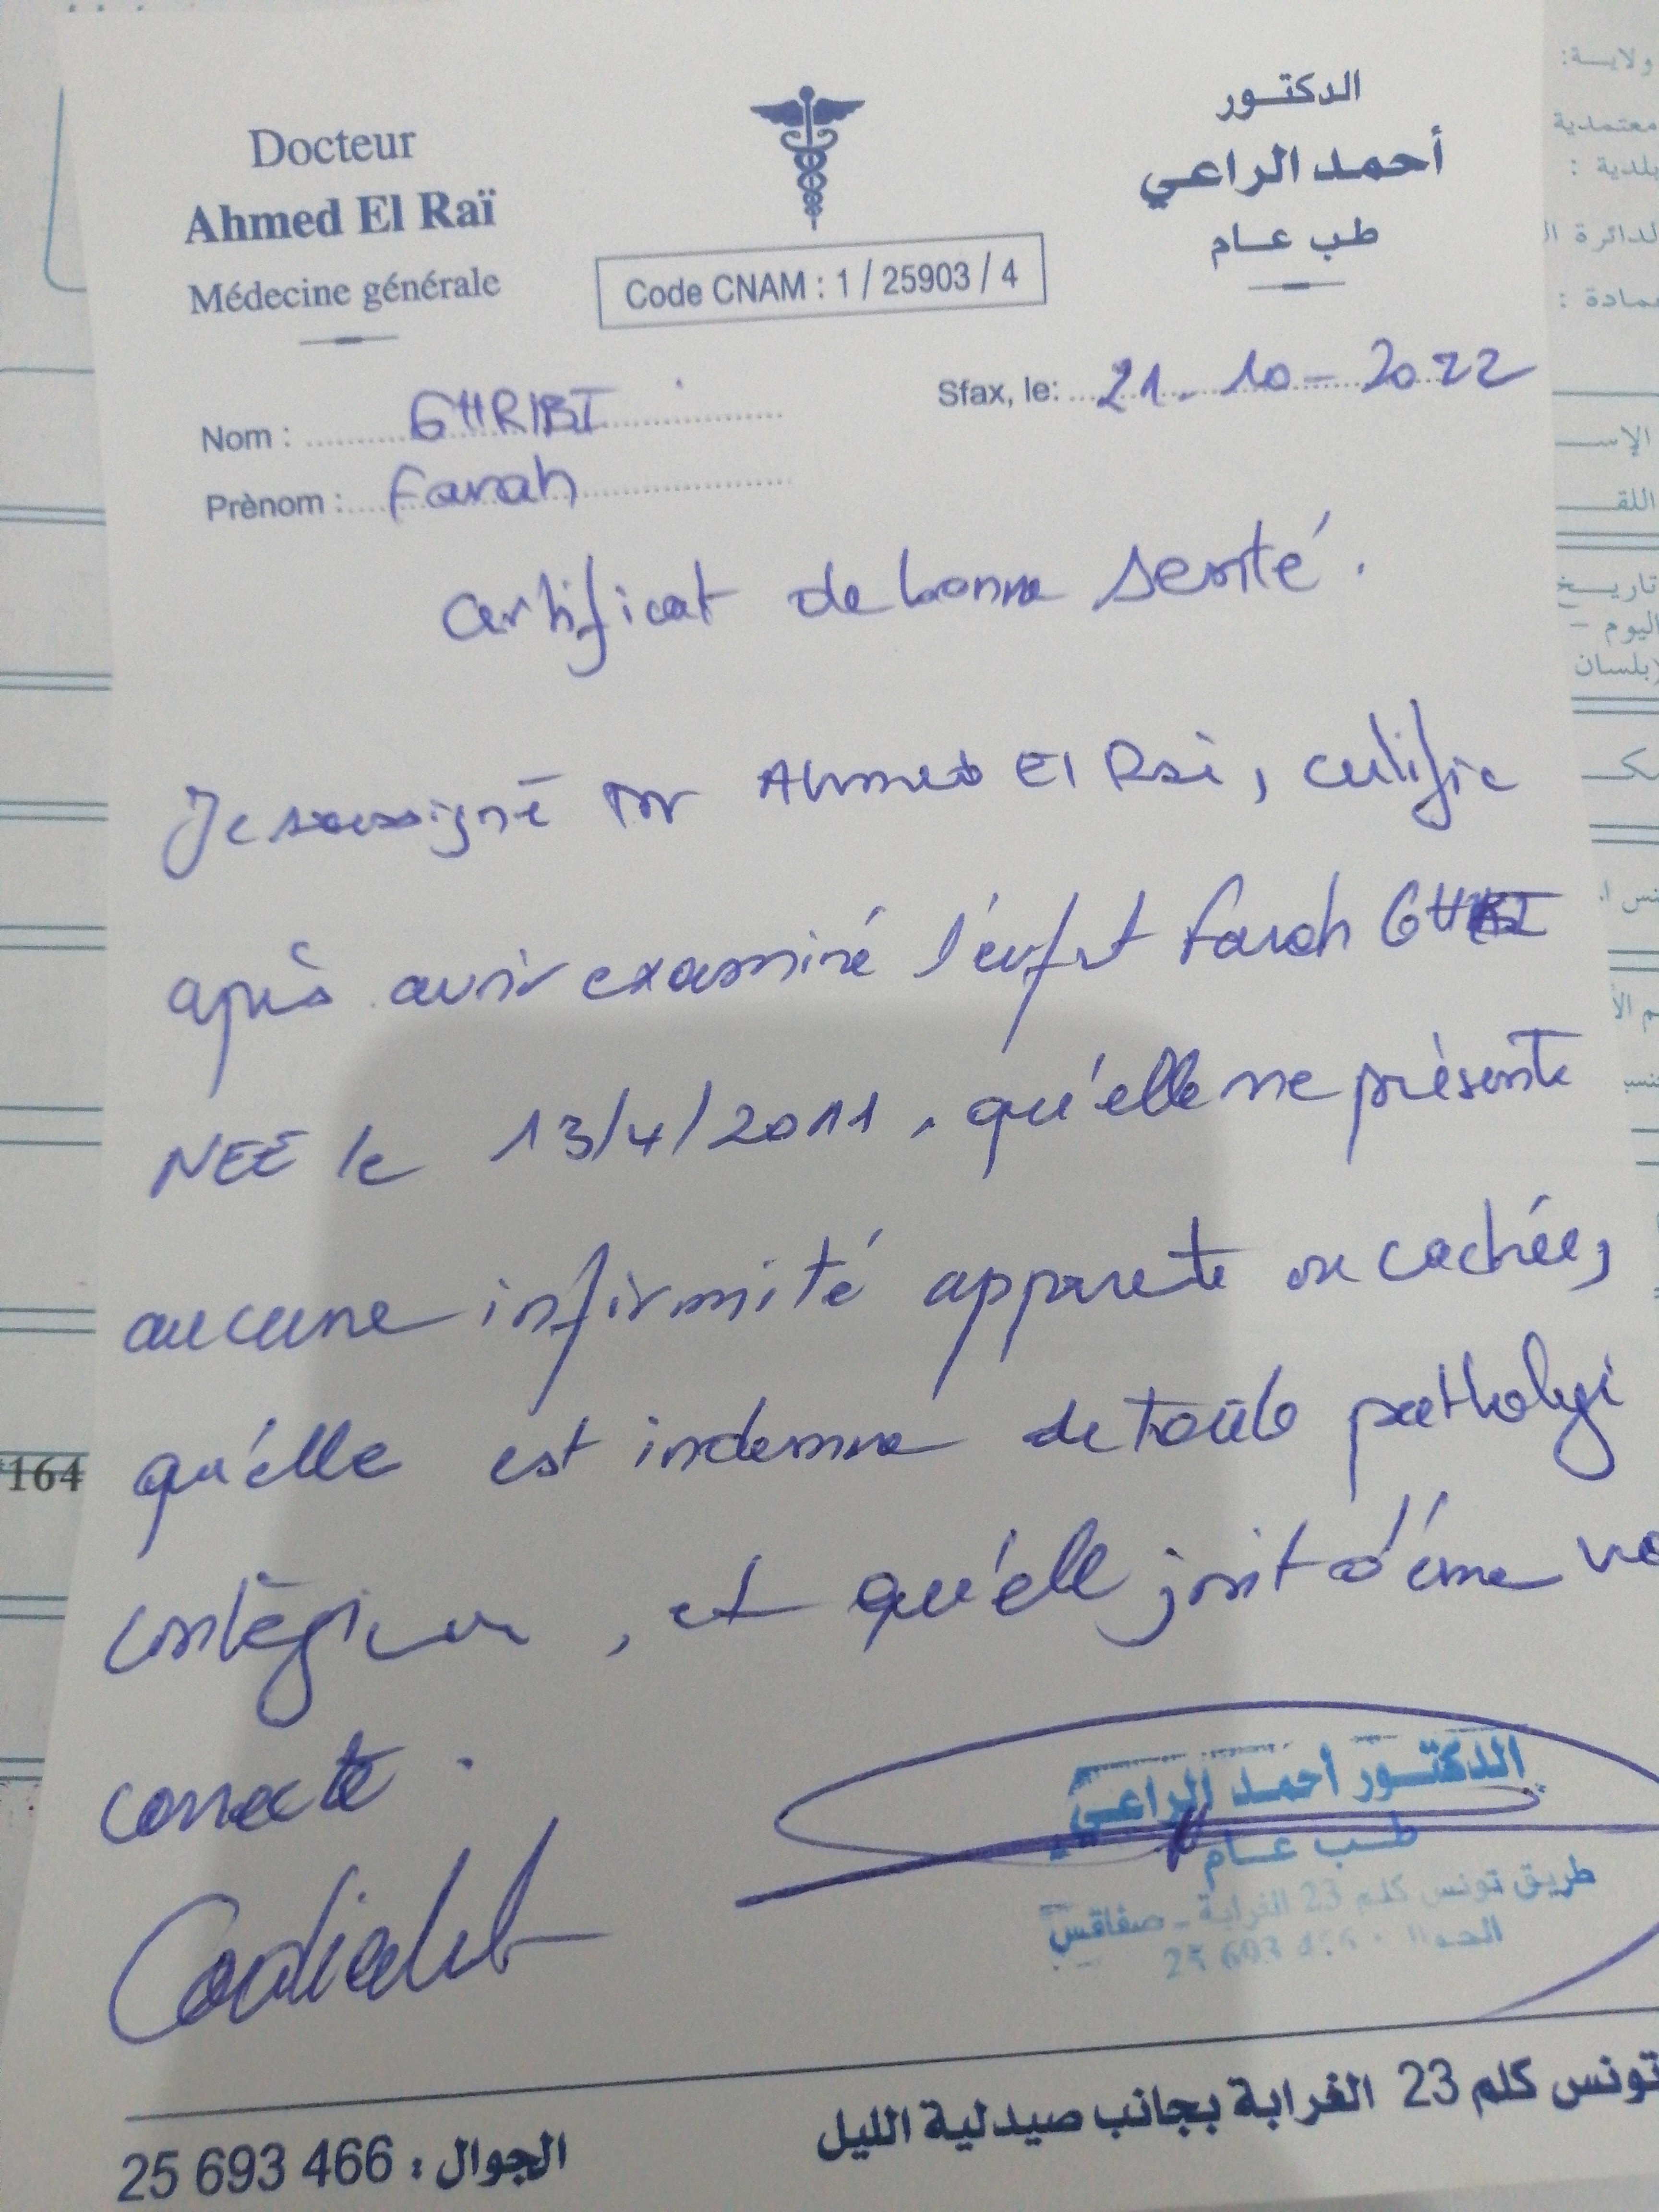 Docteur
Ahmed El Raï
Médecine générale
Code CNAM : 1 / 25903 / 4
الدكتور
أحمد الراعي
طب عام
Sfax, le: 21-10-2022
Nom : GHRIBI
Prènom : Farah
certificat de bonne santé.
Je soussigné Dr Ahmed El Raï, certifie
après avoir examiné l'enfant Farah
NEE le 13/4/2011, qu'elle ne présente
aucune infirmité apparente ou cachée,
qu'elle est indemne de toute pathologi
contagieuse, et qu'elle jouit d'une
correcte.
الدكتور أحمد الراعي
طب عام
طريق تونس كلم 23 الغرابة - صفاقس
الجوال
25 693
تونس كلم 23 الغرابة بجانب صيدلية الليل
الجوال : 466 693 25
ولاية:
معتمدية
بلدية :
عمادة :
تاريخ
اليوم -
(بلسان
164